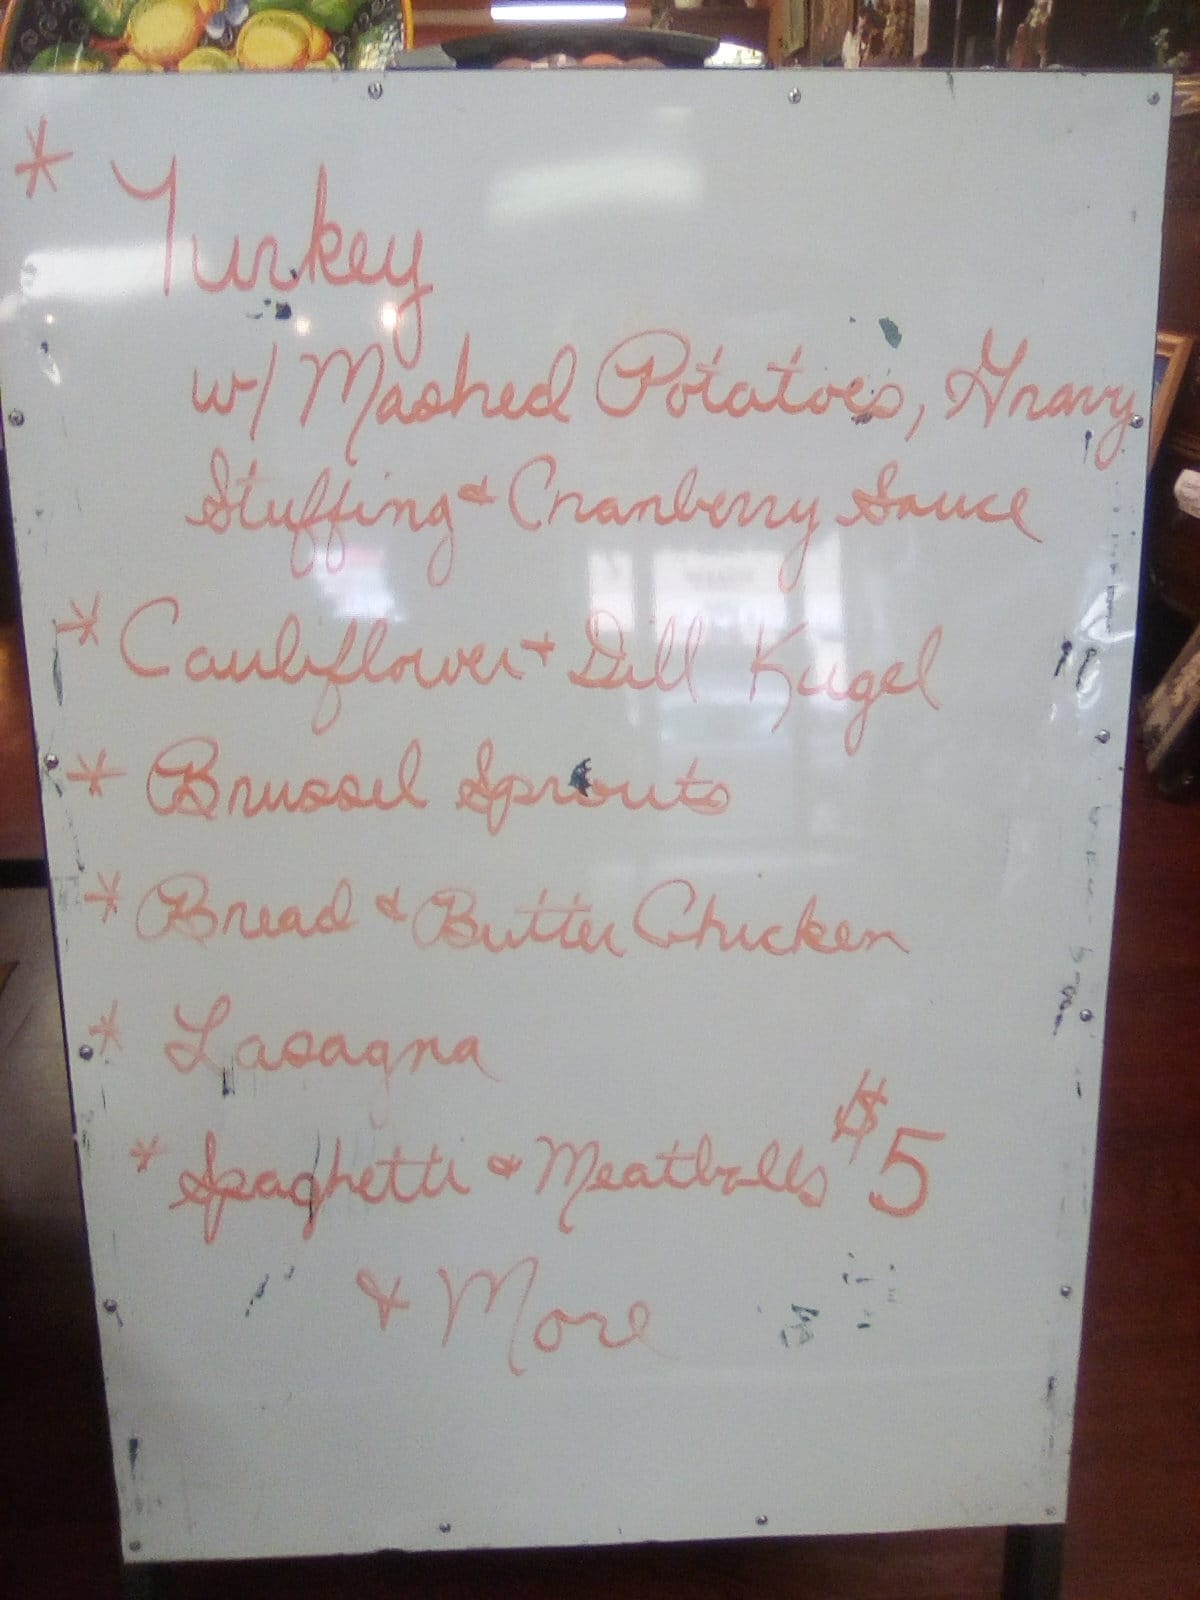 * Turkey
w/ Mashed Potatoes, Gravy
Stuffing & Cranberry Sauce
* Cauliflower + Dill Kugel
* Brussel Sprouts
* Bread & Butter Chicken
* Lasagna
* Spaghetti & Meatballs $5
& More